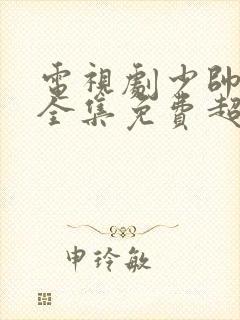 電視劇少帥
全集免費超
申玲敏